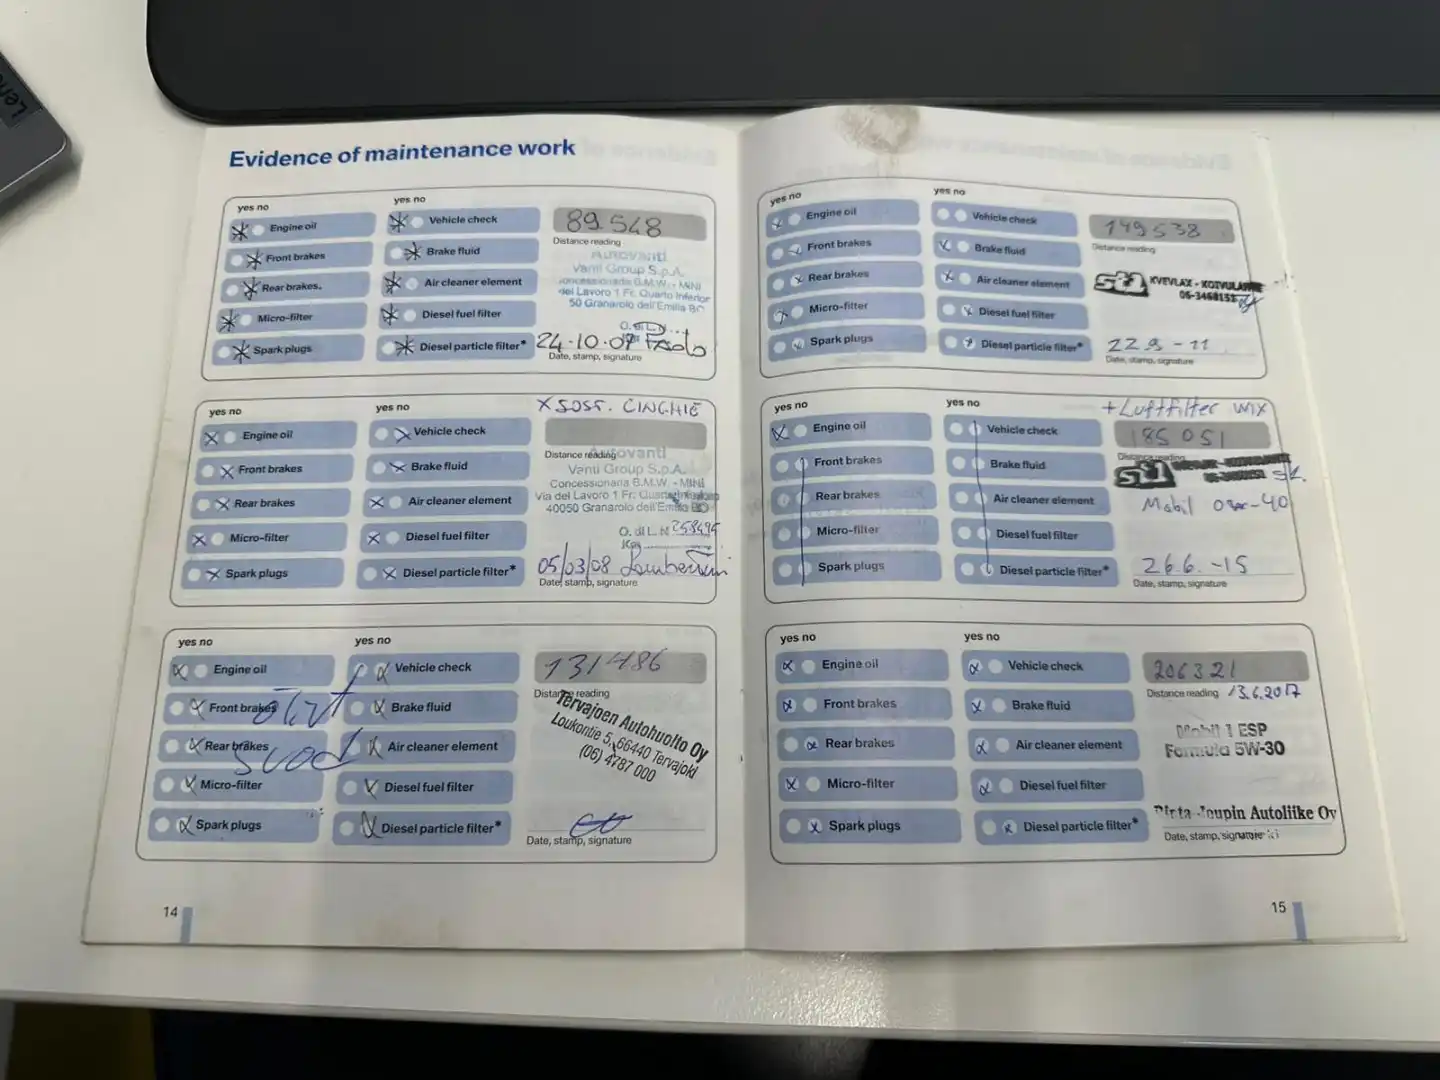 Evidence of maintenance work
yes no
yes no
Engine oil
Vehicle check
89.548
Distance reading
Front brakes
Brake fluid
Autovanti
Vanti Group S.p.A.
Rear brakes
Air cleaner element
concessionaria B.M.W. - MINI
del Lavoro 1 Fr. Quarto Inferior
50 Granarolo dell'Emilia BO
Micro-filter
Diesel fuel filter
O. di L.
Spark plugs
Diesel particle filter*
24.10.07 Paolo
Date, stamp, signature
yes no
yes no
X SOST. CINGHIE
Engine oil
Vehicle check
Distance reading
Autovanti
Front brakes
Brake fluid
Vanti Group S.p.A.
Concessionaria B.M.W. - MINI
Rear brakes
Air cleaner element
Via del Lavoro 1 Fr. Quarto Inferiore
40050 Granarolo dell'Emilia BO
Micro-filter
Diesel fuel filter
O. di L. N 258495
Km
Spark plugs
Diesel particle filter*
05/03/08
Date, stamp, signature
yes no
yes no
Engine oil
Vehicle check
131486
Distance reading
Front brakes
Brake fluid
Tervajoen Autohuolto Oy
Loukontie 5, 66440 Tervajoki
(06) 4787 000
Rear brakes
Air cleaner element
Micro-filter
Diesel fuel filter
Spark plugs
Diesel particle filter*
Date, stamp, signature
14
yes no
yes no
Engine oil
Vehicle check
149538
Distance reading
Front brakes
Brake fluid
Rear brakes
Air cleaner element
st1 KVEVLAX - KOIVULAHTI
06-3468155
Micro-filter
Diesel fuel filter
Spark plugs
Diesel particle filter*
22.9-11
Date, stamp, signature
yes no
yes no
+Luftfilter WIX
Engine oil
Vehicle check
185 051
Distance reading
Front brakes
Brake fluid
st1
Rear brakes
Air cleaner element
Mobil
Micro-filter
Diesel fuel filter
Spark plugs
Diesel particle filter*
26.6.-15
Date, stamp, signature
yes no
yes no
Engine oil
Vehicle check
206321
Distance reading 13.6.2017
Front brakes
Brake fluid
Mobil 1 ESP
Formula 5W-30
Rear brakes
Air cleaner element
Micro-filter
Diesel fuel filter
Spark plugs
Diesel particle filter*
Autoliike Oy
Date, stamp, signature
15